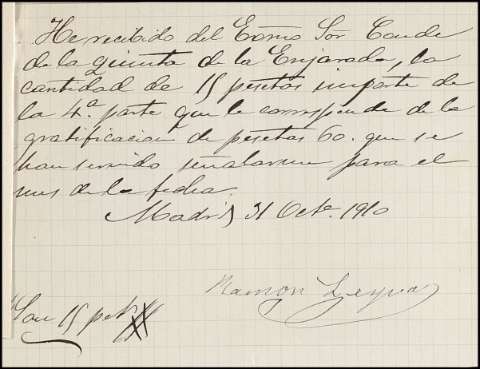 He recibido del Exmo Sor Conde
de la quinta de la Enjarada, la
cantidad de 15 pesetas importe de
la 4.ª parte que le corresponde de la
gratificacion de pesetas 60. que se
han servido señalarme para el
mes de la fecha.
Madrid 31 Octe. 1910
Ramon Leyva
Son 15 pets